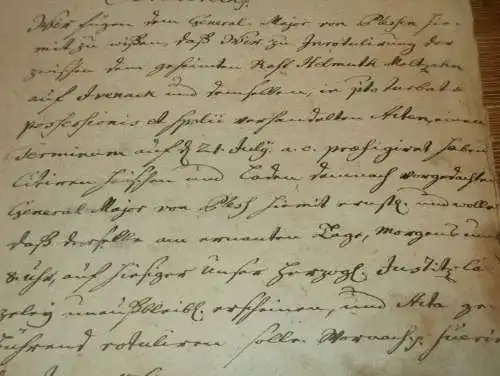 Wir fügen dem General-Major von Plessen hie-
mit zu wißen, daß Wir zu Inrotulirung der
zwischen dem geheimten Raht Helmuth Moltzahn
auf Ivenack und demselben, in pto turbatæ
possessionis et spolii verhandelten Acten, einen
Terminum auf d. 21. July. a. c. præfigiret haben
Citiren heischen und Laden demnach vorgedachten
General-Major von hiemit ernstl. und wollen
daß derselbe am ernanten Tage, Morgens um
8 uhr, auf hiesiger Unser Herzogl. Justitz-Can
zeley unausbleibl. erscheinen, und Acta ge-
bührend rotuliren solle. Wornach p.